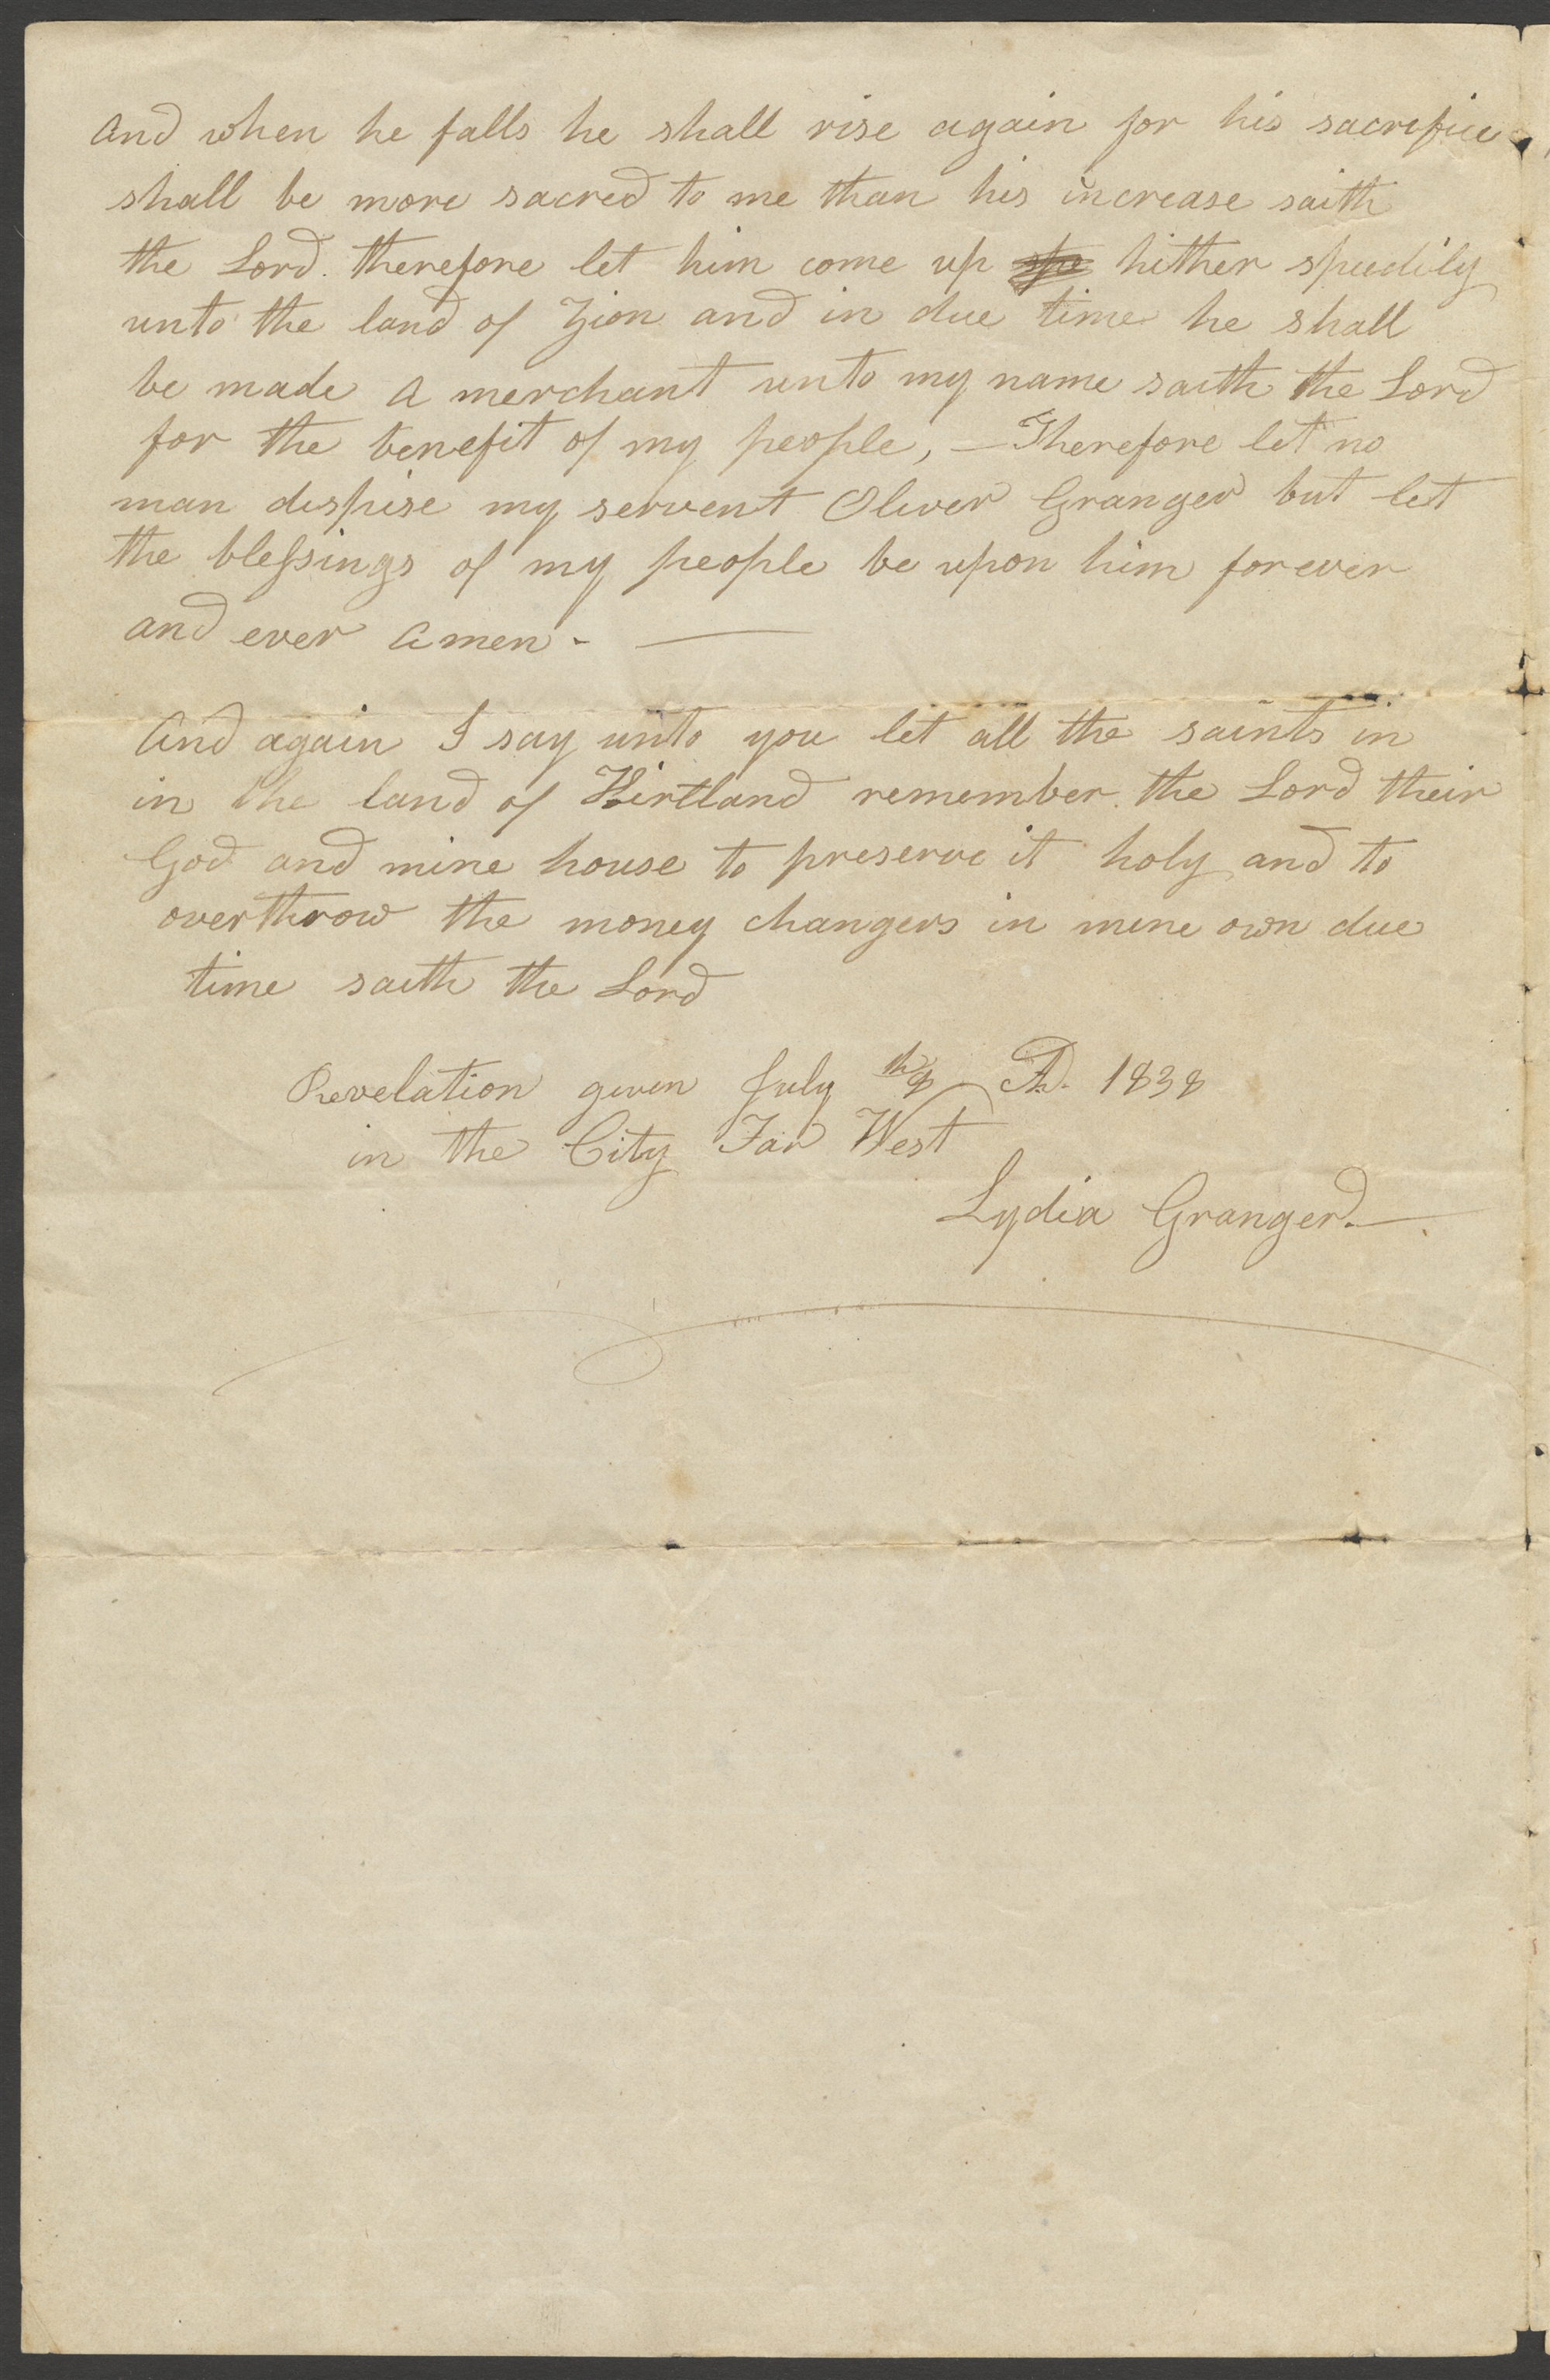 And when he falls he shall rise again for his sacrifice
shall be more sacred to me than his increase saith
the Lord. therefore let him come up spe hither speedily
unto the land of Zion and in due time he shall
be made a merchant unto my name saith the Lord
for the benefit of my people, — Therefore let no
man dispise my servent Oliver Granger but let
the blessings of my people be upon him forever
and ever Amen - —
And again I say unto you let all the saints in
in the land of Kirtland remember the Lord their
God and mine house to preserve it holy and to
overthrow the money changers in mine own due
time saith the Lord
Revelation given July 8th AD. 1838
in the City Far West
Lydia Granger. —